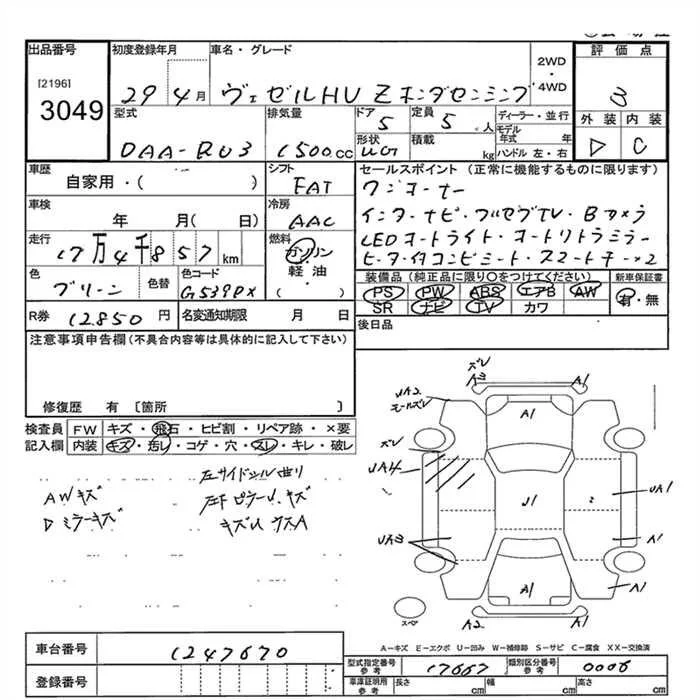 出品番号 初度登録年月 車名・グレード 評価点
[2196]
3049
29年4月 ヴェゼルHV Z ホンダセンシング 2WD・4WD 3
型式 排気量 ドア 定員 ディーラー・並行 外装 内装
DAA-RU3 1500cc 5 5人 モデル年式 年 D C
形状 積載 kg ハンドル 左・右
車歴 シフト セールスポイント（正常に機能するものに限ります）
自家用・( ) FAT ワンオーナー
車検 冷房 インターナビ・フルセグTV・Bカメラ
年 月(日) AAC LEDオートライト・オートリトラミラー
走行 17万4千857km 燃料 ガソリン
軽油
( )
色 グリーン 色替 色コード G539PX 装備品（純正品に限り○をつけてください） 新車保証書
PS PW ABS エアB AW 有・無
SR ナビ TV カワ
R券 12850円 名変通知期限 月 日 後日品
注意事項申告欄（不具合内容等は具体的に記入して下さい）
修復歴 有 〔箇所 〕
検査員 FW キズ・飛石・ヒビ割・リペア跡・×要
記入欄 内装 キズ・汚レ・コゲ・穴・スレ・キレ・破レ
左サイドシル曲り
AWキズ
Dミラーキズ
ズレ
A3 A1
UA2
モールズレ
A1
ズレ
UA4
U1 UA1
UA3 A1
A1 A1
A2 A1
スペア
A－キズ E－エクボ U－凹み W－補修跡 S－サビ C－腐食 XX－交換済
車台番号 1247670
登録番号
型式指定番号 参考 17667 類別区分番号 参考 0006
車庫証明用 参考 長さ cm 幅 cm 高さ cm